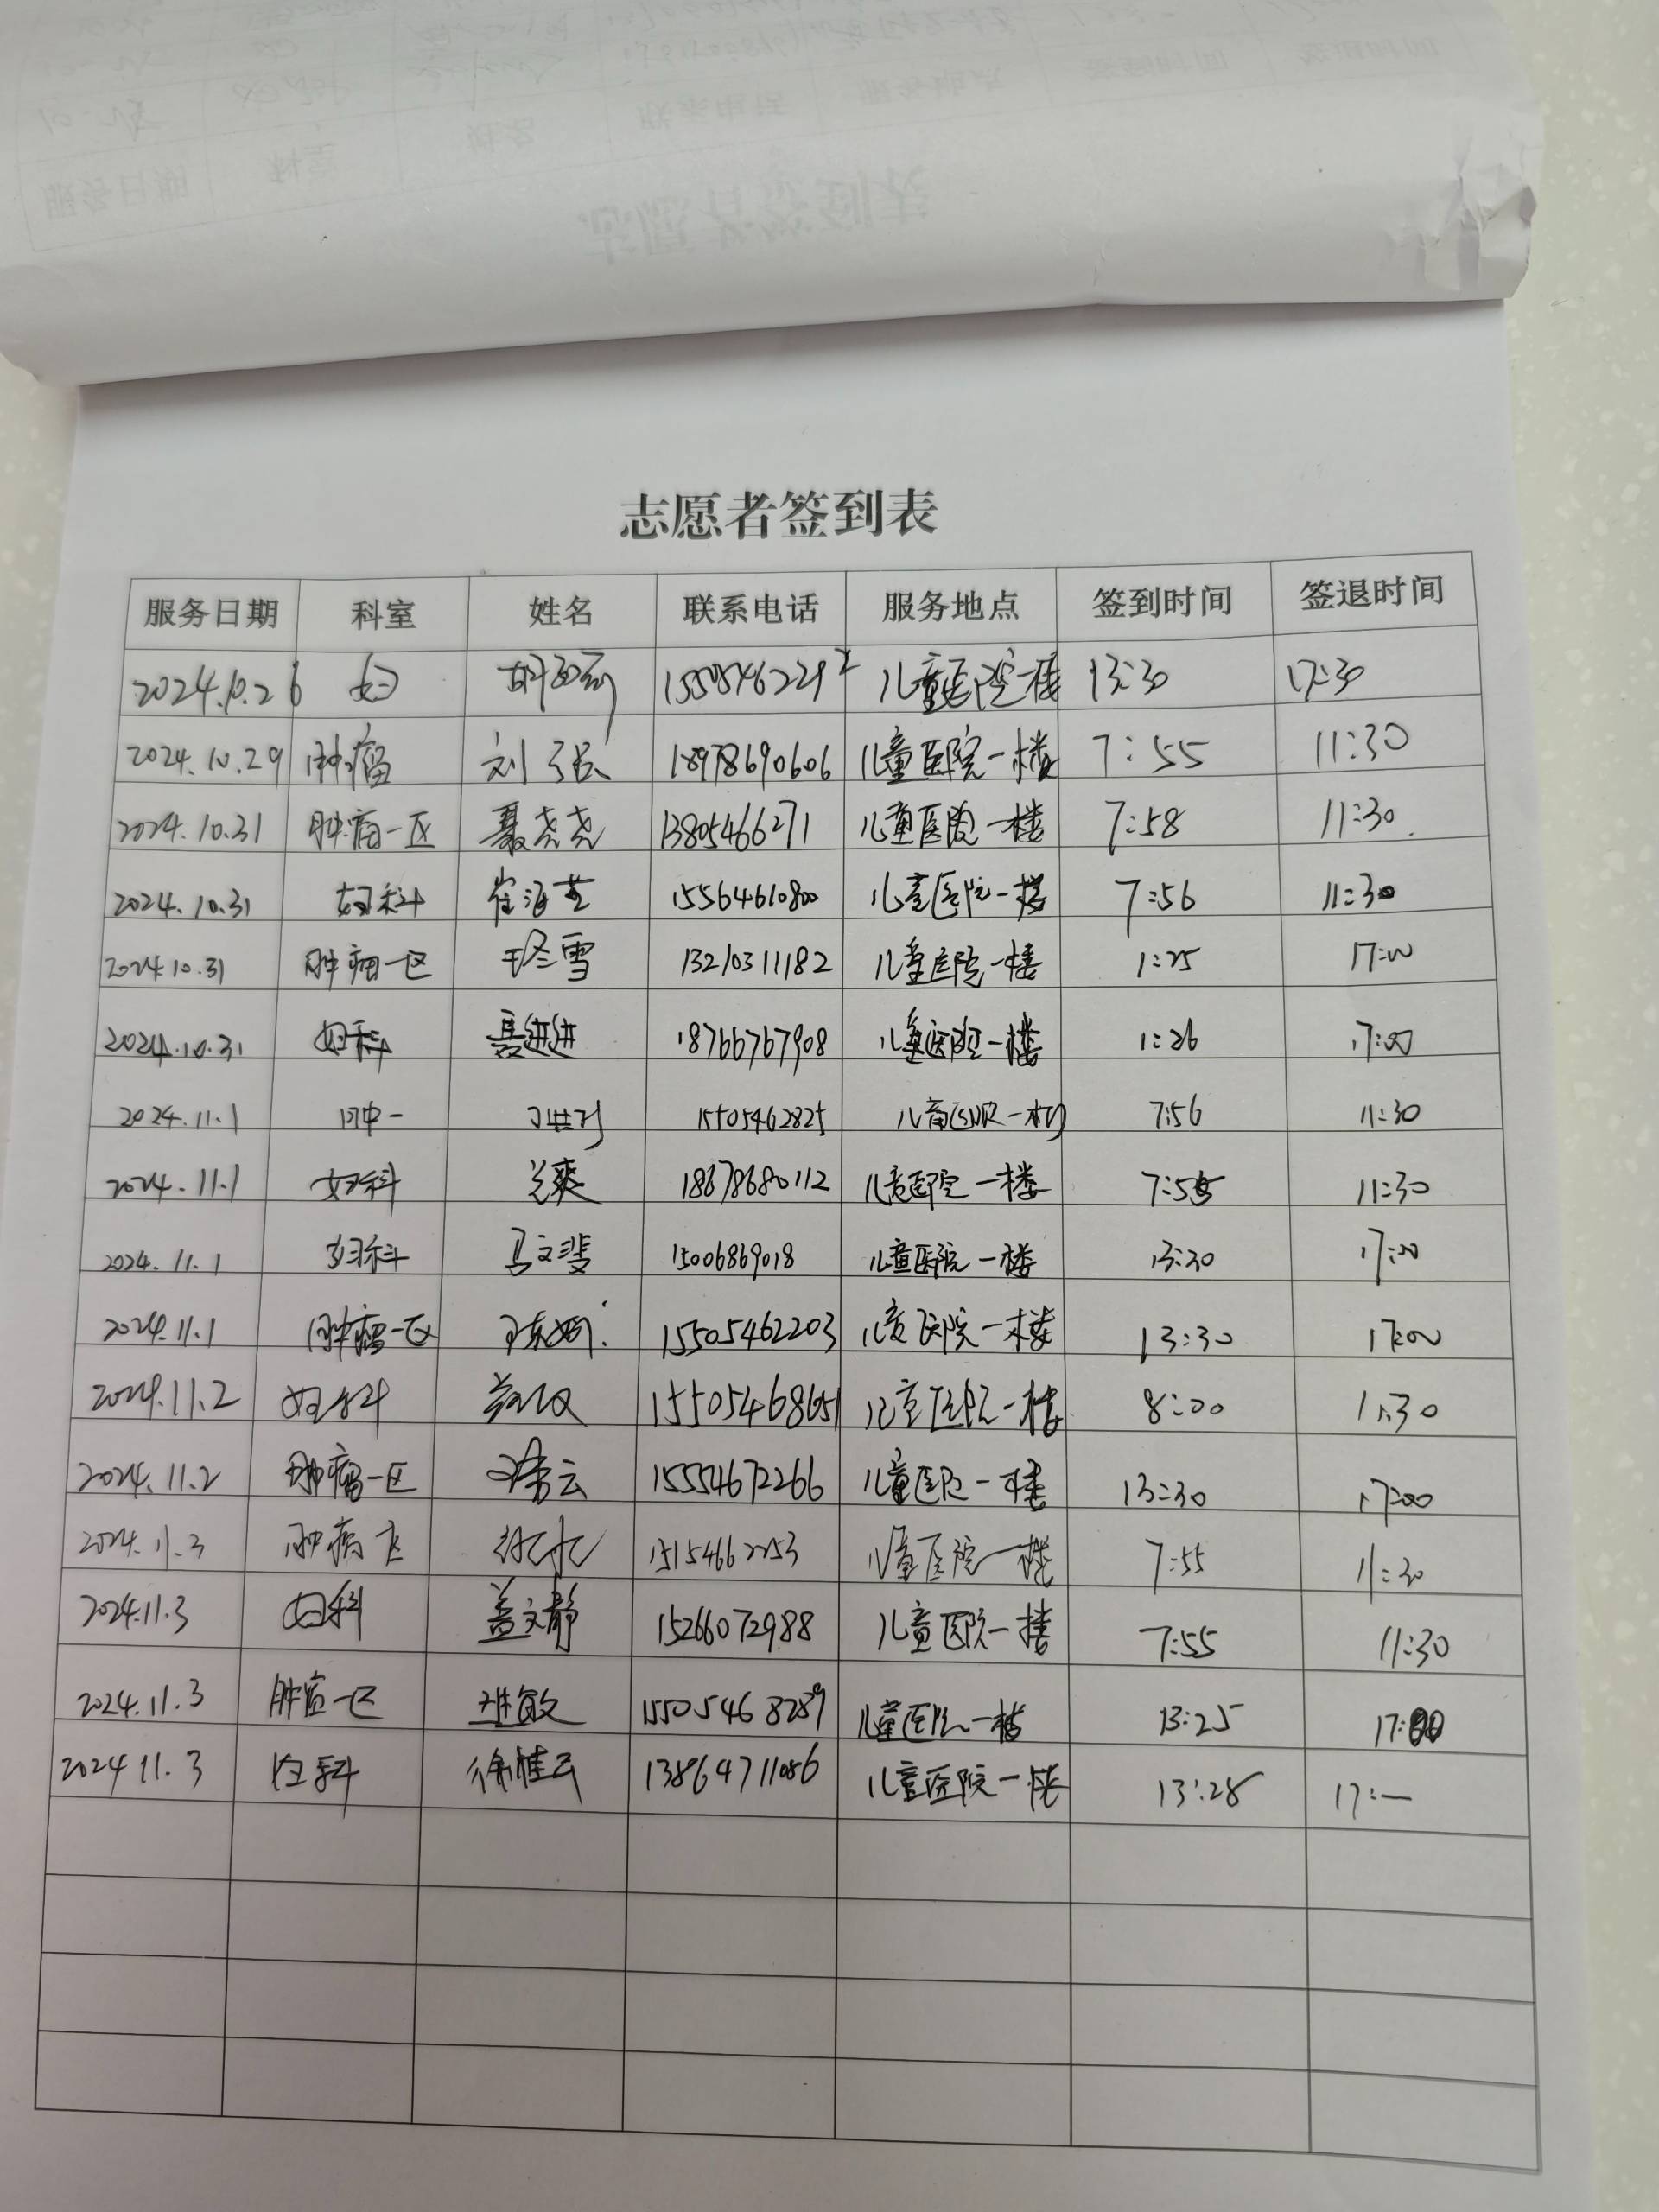 志愿者签到表
服务日期 科室 姓名 联系电话 服务地点 签到时间 签退时间
2024.10.26 妇 儿童医院一楼 13:30 17:30
2024.10.29 肿瘤 刘强 18978690606 儿童医院一楼 7:55 11:30
2024.10.31 肿瘤一区 聂尧尧 13805466271 儿童医院一楼 7:58 11:30
2024.10.31 妇科 崔海芝 15564610800 儿童医院一楼 7:56 11:30
2024.10.31 肿瘤一区 冬雪 13210311182 儿童医院一楼 1:25 17:00
2024.10.31 妇科 聂进进 18766767908 儿童医院一楼 1:26 17:00
2024.11.1 肿一 15505462825 儿童医院一楼 7:56 11:30
2024.11.1 妇科 兰爽 18678680112 儿童医院一楼 7:55 11:30
2024.11.1 妇科 马文斐 15006869018 儿童医院一楼 13:30 17:00
2024.11.1 肿瘤一区 15505462203 儿童医院一楼 13:30 17:00
2024.11.2 妇科 15505468651 儿童医院一楼 8:00 11:30
2024.11.2 肿瘤一区 15554672266 儿童医院一楼 13:30 17:00
2024.11.3 肿瘤 15154662253 儿童医院一楼 7:55 11:30
2024.11.3 妇科 盖文静 15266072988 儿童医院一楼 7:55 11:30
2024.11.3 肿瘤一区 15505468289 儿童医院一楼 13:25 17:00
2024 11.3 妇科 徐桂云 13864711086 儿童医院一楼 13:28 17:—